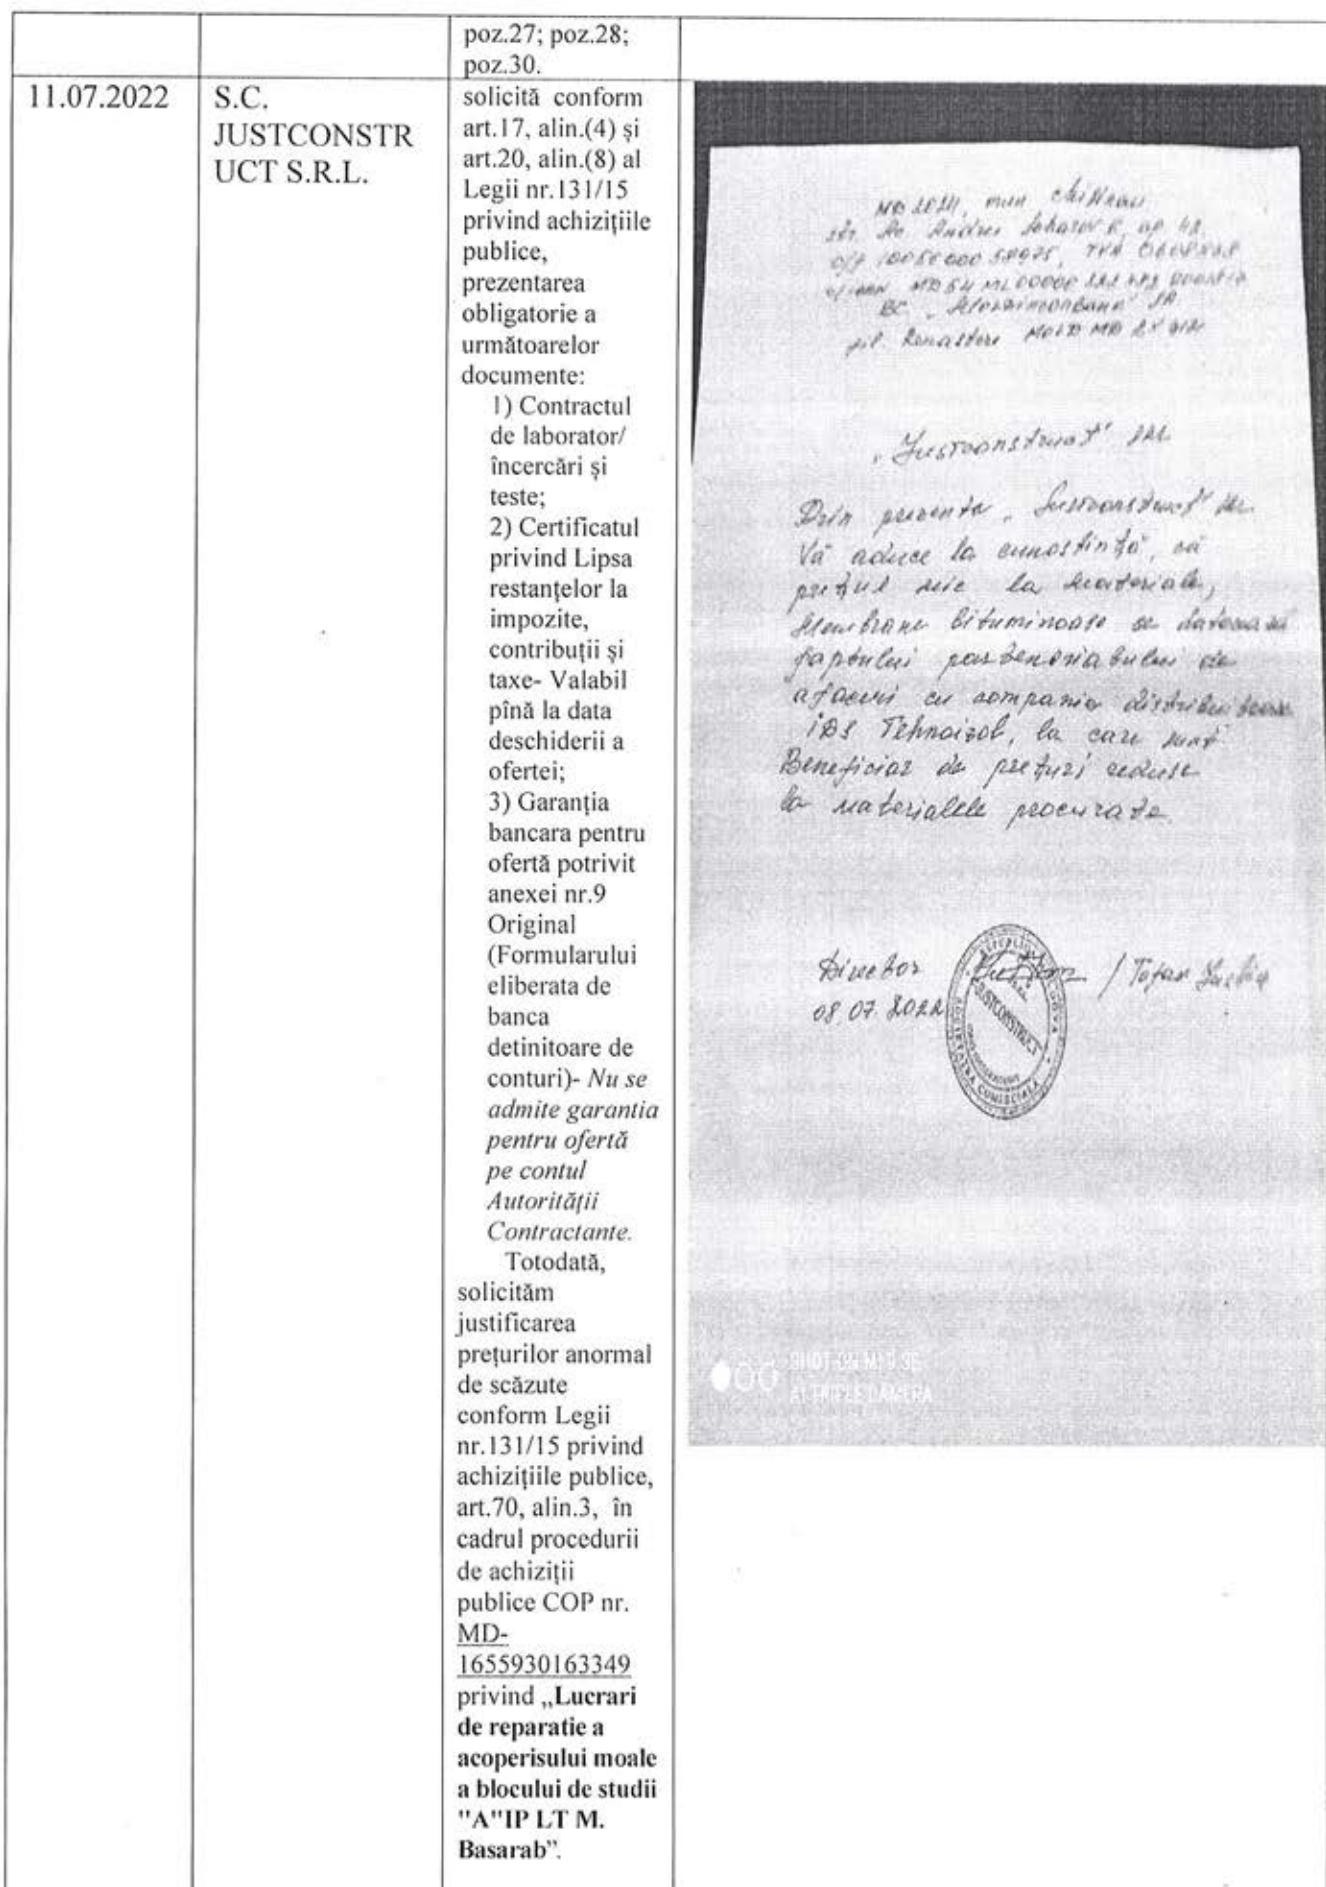 poz.27; poz.28;
poz.30.
11.07.2022
S.C.
JUSTCONSTR
UCT S.R.L.
solicită conform
art.17, alin.(4) și
art.20, alin.(8) al
Legii nr.131/15
privind achizițiile
publice,
prezentarea
obligatorie a
următoarelor
documente:
1) Contractul
de laborator/
încercări și
teste;
2) Certificatul
privind Lipsa
restanțelor la
impozite,
contribuții și
taxe- Valabil
pînă la data
deschiderii a
ofertei;
3) Garanția
bancara pentru
ofertă potrivit
anexei nr.9
Original
(Formularului
eliberata de
banca
detinitoare de
conturi)- Nu se
admite garantia
pentru ofertă
pe contul
Autorității
Contractante.
Totodată,
solicităm
justificarea
prețurilor anormal
de scăzute
conform Legii
nr.131/15 privind
achizițiile publice,
art.70, alin.3, în
cadrul procedurii
de achiziții
publice COP nr.
MD-
1655930163349
privind „Lucrari
de reparatie a
acoperisului moale
a blocului de studii
"A"IP LT M.
Basarab”.
mun
str. Ac. Andrei ap.
BC
fil. Renastere
„Justconstruct" SRL
Prin prezenta „Justconstruct" SRL
Vă aduce la cunostință, că
prețul mic la materiale,
Membrane bituminoase se
faptului parteneriatului de
afaceri cu compania distribuitoare
IDS Tehnoizol, la care sunt
Beneficiar de prețuri reduse
la materialele procurate.
Director / Tofan
08.07.2022
JUSTCONSTRUCT
SHOT ON MI 9 SE
AI TRIPLE CAMERA